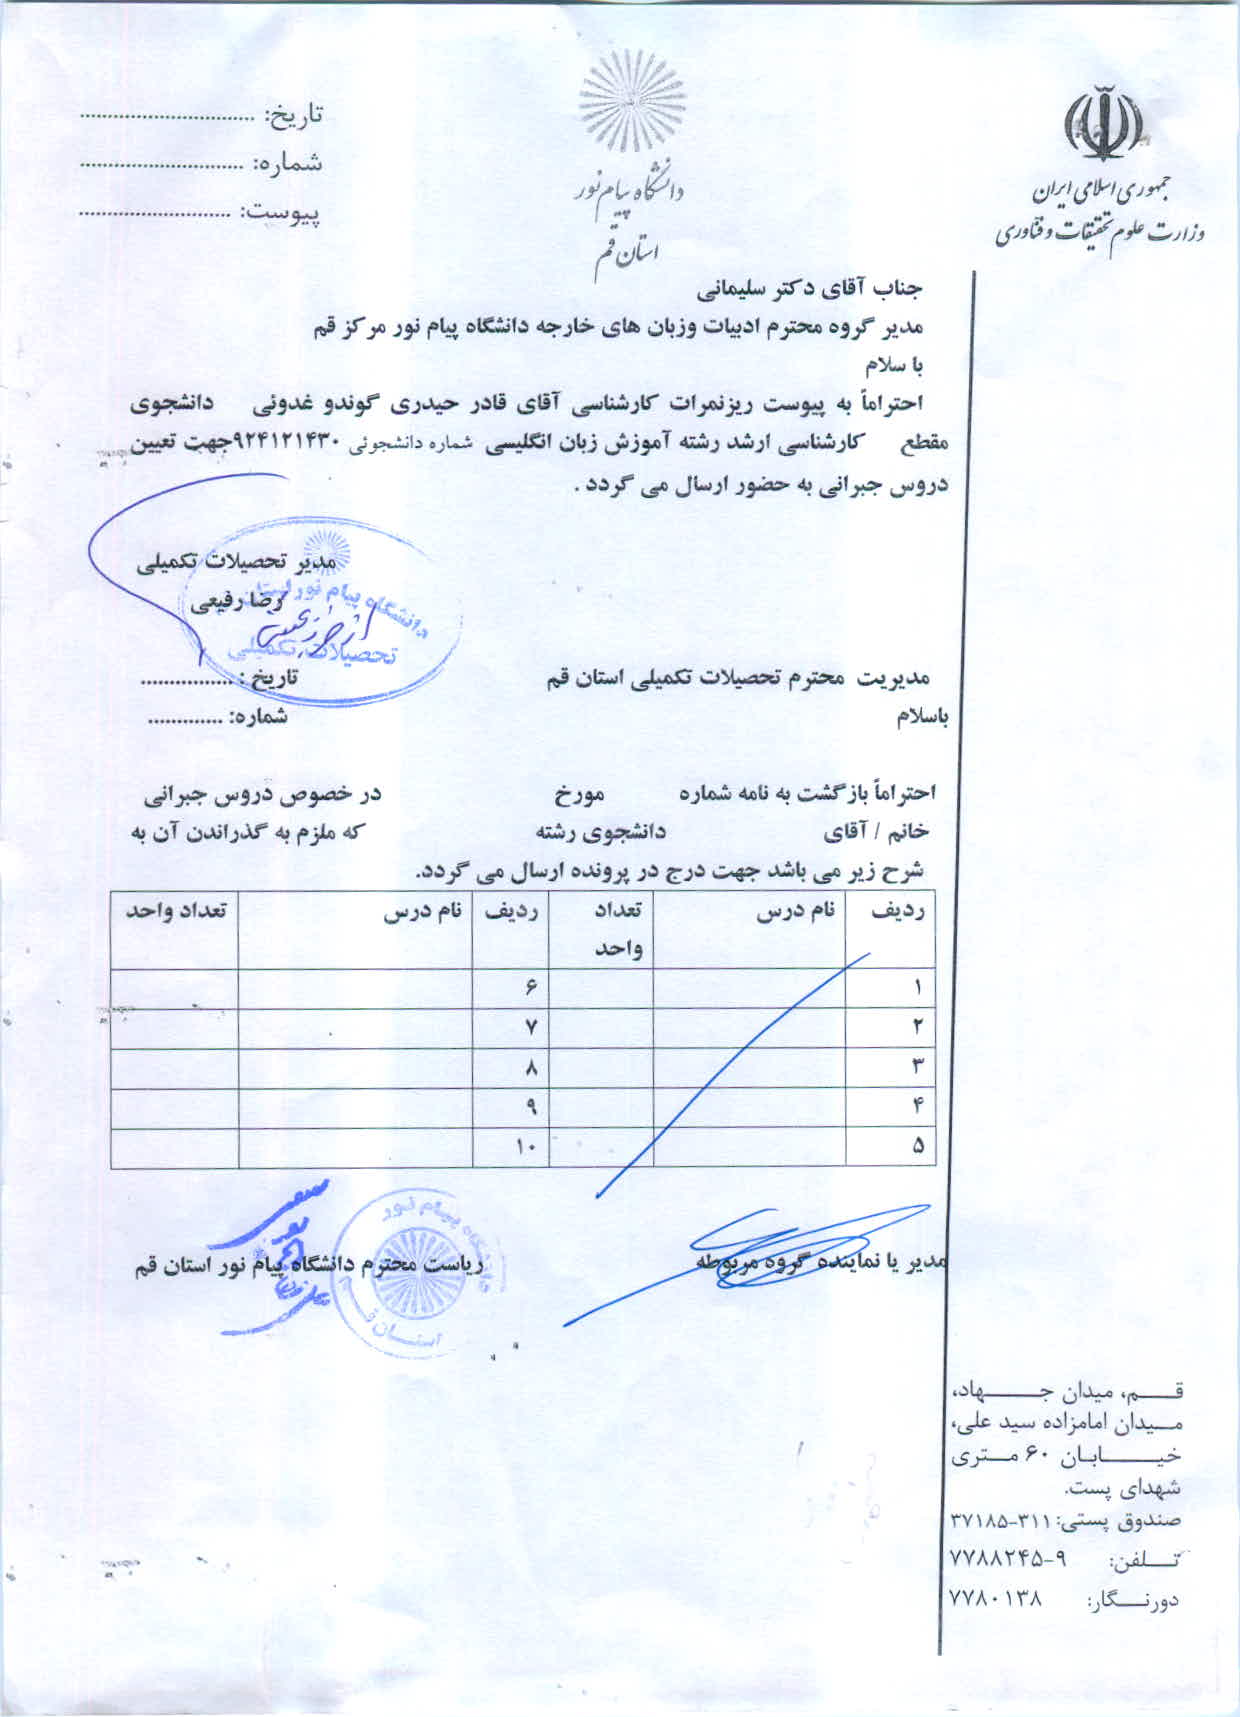 جمهوری اسلامی ایران
وزارت علوم تحقیقات و فناوری
دانشگاه پیام نور
استان قم
تاریخ: ..............................
شماره: ............................
پیوست: ..........................
جناب آقای دکتر سلیمانی
مدیر گروه محترم ادبیات وزبان های خارجه دانشگاه پیام نور مرکز قم
با سلام
احتراماً به پیوست ریزنمرات کارشناسی آقای قادر حیدری گوندو غدوئی دانشجوی
مقطع کارشناسی ارشد رشته آموزش زبان انگلیسی شماره دانشجوئی ۹۲۴۱۲۱۴۳۰جهت تعیین
دروس جبرانی به حضور ارسال می گردد .
مدیر تحصیلات تکمیلی
رضا رفیعی
دانشگاه پیام نور استان
تحصیلات تکمیلی
مدیریت محترم تحصیلات تکمیلی استان قم
تاریخ : ................
باسلام
شماره: .............
احتراماً بازگشت به نامه شماره مورخ در خصوص دروس جبرانی
خانم / آقای دانشجوی رشته که ملزم به گذراندن آن به
شرح زیر می باشد جهت درج در پرونده ارسال می گردد.
ردیف نام درس تعداد واحد ردیف نام درس تعداد واحد
۱ ۶
۲ ۷
۳ ۸
۴ ۹
۵ ۱۰
مدیر یا نماینده گروه مربوطه
ریاست محترم دانشگاه پیام نور استان قم
دانشگاه پیام نور
استان قم
قم، میدان جهاد،
میدان امامزاده سید علی،
خیابان ۶۰ متری
شهدای پست.
صندوق پستی: ۳۱۱-۳۷۱۸۵
تلفن: ۹-۷۷۸۸۲۴۵
دورنگار: ۷۷۸۰۱۳۸